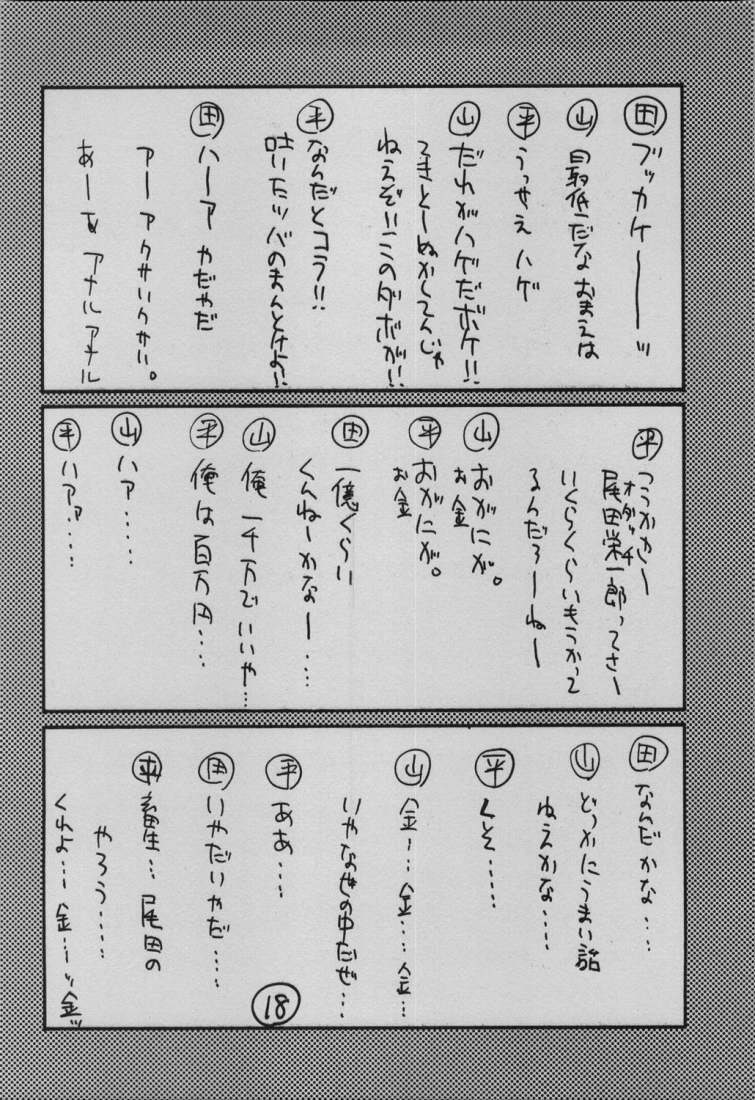 田 ブッカケーーーッ
山 最低だなおまえは
平 うっせえ ハゲ
山 だれがハゲだボケ!!
てきとーぬかしてんじゃ
ねえぞ!!このダボが!!
平 なんだとコラ!!
吐いたツバのまんとけよ!!
田 ハーア やだやだ
アー アクサいクサい。
あーあ アナル アナル
平 つうかさー
尾田栄一郎ってさー
オダッチ
いくらくらいもうかって
るんだろーねー
山 おがにが。
お金
平 おがにが。
お金
田 一億くらい
くんねーかなー‥‥
山 俺 一千万でいいや‥‥
平 俺は百万円‥‥
山 ハァ‥‥‥
平 ハアァ‥‥‥
田 なんだかな‥‥
山 どっかにうまい話
ねえかな‥‥‥
平 くそ‥‥‥
山 金‥‥金‥‥金‥‥
いやなせの中だぜ‥‥
平 ああ‥‥
田 いやだいやだ‥‥
畜生‥‥尾田の
やろう‥‥‥
くんなよ‥‥金‥‥ッ金ッ
18